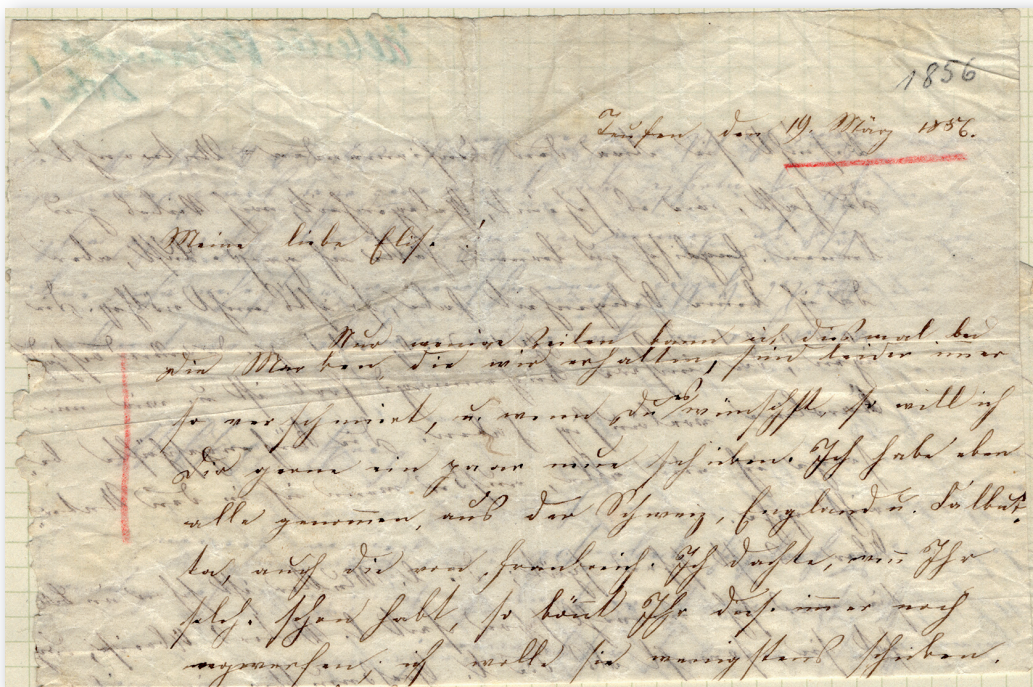 1856
Teufen, den 19. März 1856.
Meine liebe Elise!
Nur wenige Zeilen kann ich diesmal bei
die Marken die wir erhalten, sind leider imer
so verschmiert, u. wenn Du es wünschst so will ich
Dir gerne ein paar neue schiken. Ich habe eben
alle genomen, aus der Schweiz, England u. Calkut
ta, auch die von Frankreich. Ich dachte, wenn Ihr
solche schon habt, so könt Ihr diese imer noch
wegwerfen, ich wolle sie wenigstens schiken.